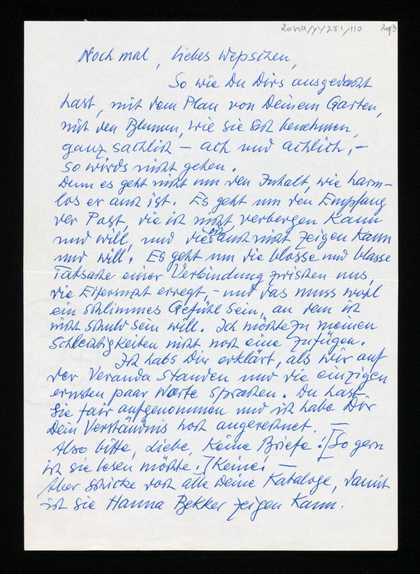 2013/XV/281/110 2v3
Nochmal, liebes Wepsizen,
So wie Du Dirs ausgedacht
hast, mit dem Plan von Deinem Garten,
mit den Blumen, wie sie sich benehmen,
ganz sachlich – ach und achlich, –
so wirds nicht gehen.
Denn es geht nicht um den Inhalt, wie harm-
los er auch ist. Es geht um den Empfang
der Post, die ich nicht verbergen kann
und will, und die ich auch nicht zeigen kann
und will. Es geht um die blosse und blasse
Tatsache einer Verbindung zwischen uns,
die Eifersucht erregt, – und das muss wohl
ein schlimmes Gefühl sein, an dem ich
nicht schuld sein will. Ich möchte zu meinen
Schlechtigkeiten nicht noch eine zufügen.
Ich habs Dir erklärt, als wir auf
der Veranda standen und die einzigen
ernsten paar Worte sprachen. Du hast
sie fair aufgenommen und ich habe Dir
Dein Verständnis hoch angerechnet. –
Also bitte, liebe, keine Briefe! [So gern
ich sie lesen möchte.] Keine! –
Aber schicke doch alle Deine Kataloge, damit
ich sie Hanna Bekker zeigen kann.